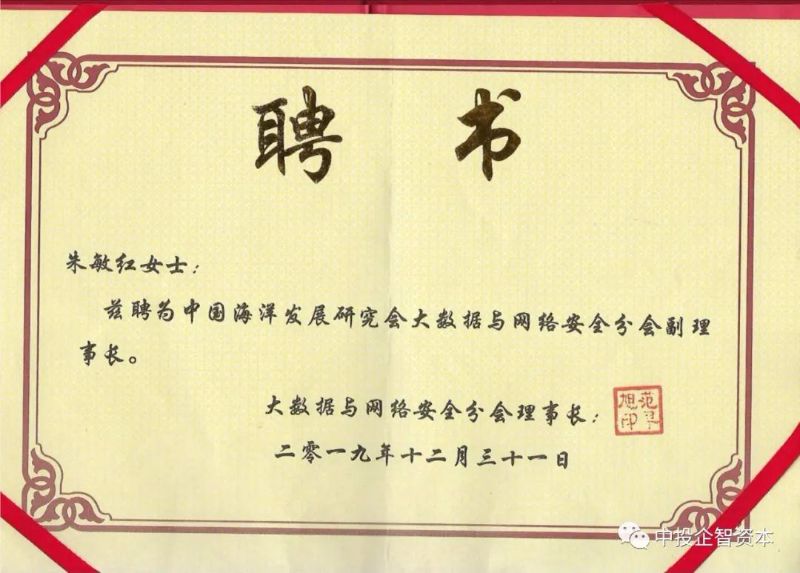 聘 书
朱敏红女士:
兹聘为中国海洋发展研究会大数据与网络安全分会副理
事长。
大数据与网络安全分会理事长:
二零一九年十二月三十一日
中投企智资本